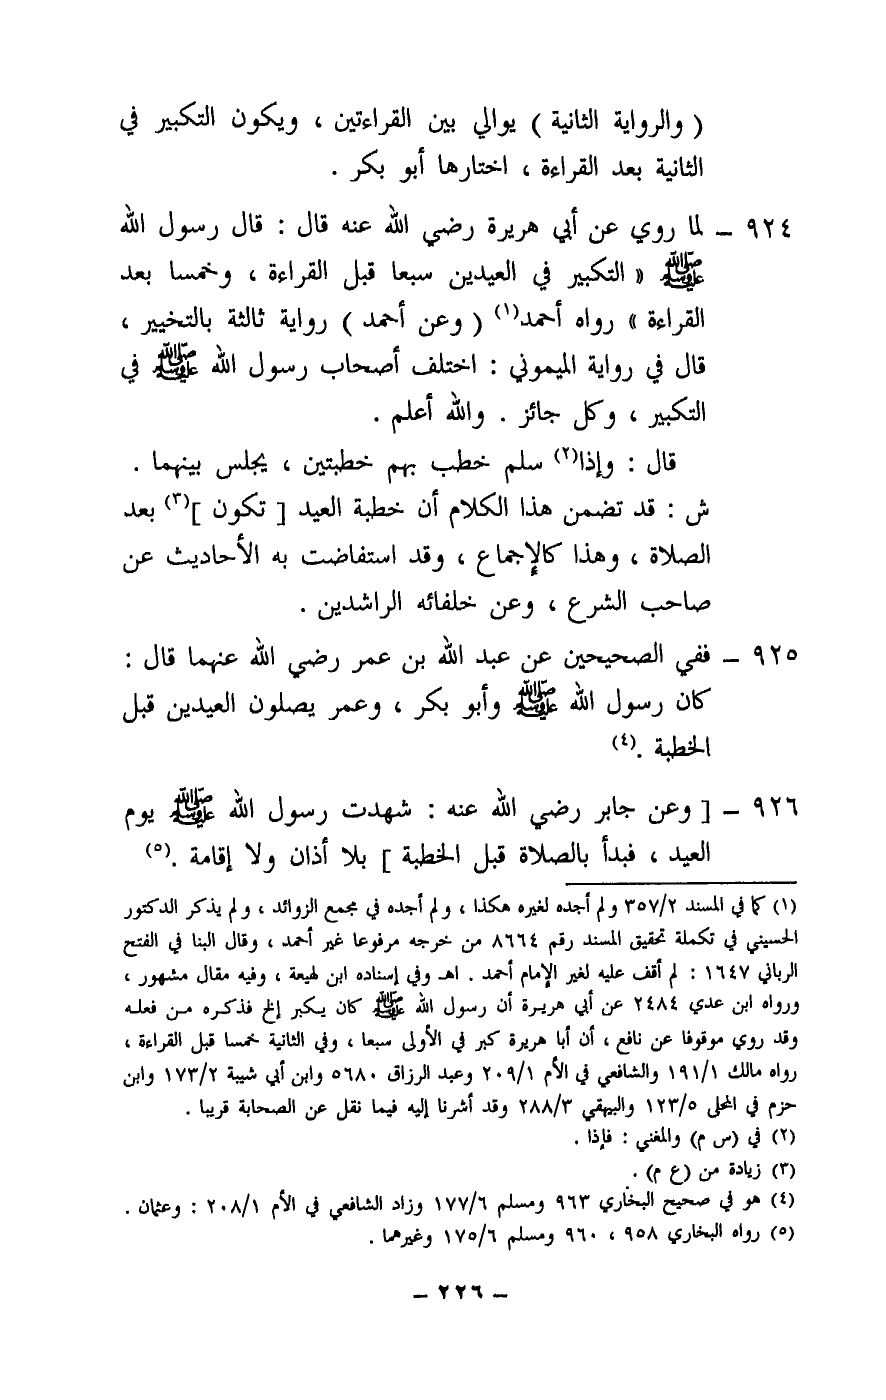 ( والرواية الثانية ) يوالي بين القراءتين ، ويكون التكبير في
الثانية بعد القراءة ، اختارها أبو بكر .
٩٢٤ – لما روي عن أبي هريرة رضي الله عنه قال : قال رسول الله
ﷺ « التكبير في العيدين سبعا قبل القراءة ، وخمسا بعد
القراءة » رواه أحمد(١) ( وعن أحمد ) رواية ثالثة بالتخيير ،
قال في رواية الميموني : اختلف أصحاب رسول الله ﷺ في
التكبير ، وكل جائز . والله أعلم .
قال : وإذا(٢) سلم خطب بهم خطبتين ، يجلس بينهما .
ش : قد تضمن هذا الكلام أن خطبة العيد [ تكون ](٣) بعد
الصلاة ، وهذا كالإجماع ، وقد استفاضت به الأحاديث عن
صاحب الشرع ، وعن خلفائه الراشدين .
٩٢٥ – ففي الصحيحين عن عبد الله بن عمر رضي الله عنهما قال :
كان رسول الله ﷺ وأبو بكر ، وعمر يصلون العيدين قبل
الخطبة .(٤)
٩٢٦ – [ وعن جابر رضي الله عنه : شهدت رسول الله ﷺ يوم
العيد ، فبدأ بالصلاة قبل الخطبة ] بلا أذان ولا إقامة .(٥)
(١) كما في المسند ٣٥٧/٢ ولم أجده لغيره هكذا ، ولم أجده في مجمع الزوائد ، ولم يذكر الدكتور
الحسيني في تكملة تحقيق المسند رقم ٨٦٦٤ من خرجه مرفوعا غير أحمد ، وقال البنا في الفتح
الرباني ١٦٤٧ : لم أقف عليه لغير الإمام أحمد . اهـ وفي إسناده ابن لهيعة ، وفيه مقال مشهور ،
ورواه ابن عدي ٢٤٨٤ عن أبي هريرة أن رسول الله ﷺ كان يكبر إلخ فذكره من فعله
وقد روي موقوفا عن نافع ، أن أبا هريرة كبر في الأولى سبعا ، وفي الثانية خمسا قبل القراءة ،
رواه مالك ١٩١/١ والشافعي في الأم ٢٠٩/١ وعبد الرزاق ٥٦٨٠ وابن أبي شيبة ١٧٣/٢ وابن
حزم في المحلى ١٢٣/٥ والبيهقي ٢٨٨/٣ وقد أشرنا إليه فيما نقل عن الصحابة قريبا .
(٢) في (س م) والمغني : فإذا .
(٣) زيادة من (ع م) .
(٤) هو في صحيح البخاري ٩٦٣ ومسلم ١٧٧/٦ وزاد الشافعي في الأم ٢٠٨/١ : وعثمان .
(٥) رواه البخاري ٩٥٨ ، ٩٦٠ ومسلم ١٧٥/٦ وغيرهما .
– ٢٢٦ –